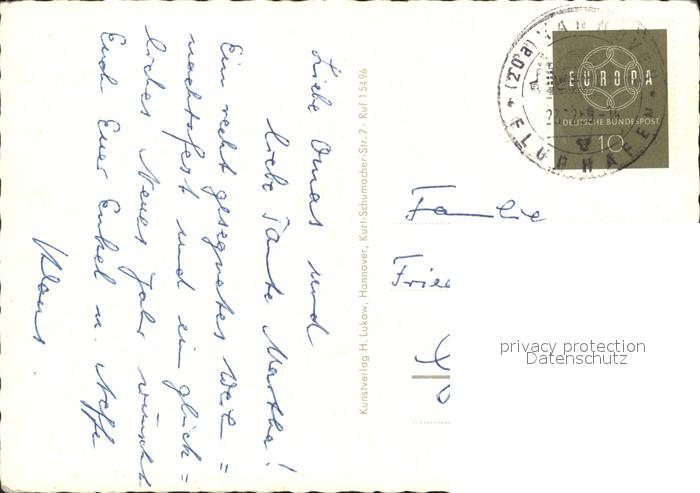 Liebe Omas und
liebe Tante Martha!
Ein recht gesegnetes Weih=
nachtsfest und ein glück=
liches Neues Jahr wünscht
Euch Euer Enkel u. Neffe
Klaus.
Kunstverlag H. Lukow, Hannover, Kurt-Schumacher-Str. 7 · Ruf 15496
HANNOV
(20a)
FLUGHAFEN
EUROPA
DEUTSCHE BUNDESPOST
10
Familie
Frie
privacy protection
Datenschutz